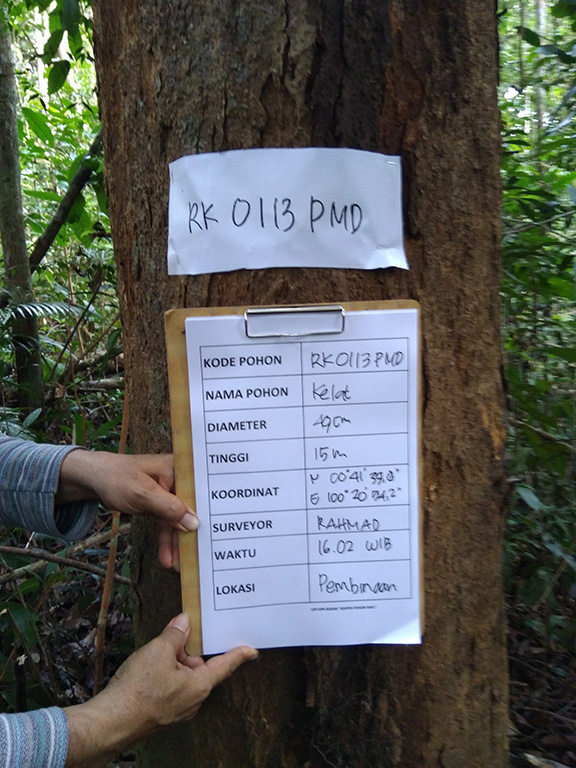 RK 0113 PMD
KODE POHON RK0113PMD
NAMA POHON Kelat
DIAMETER 49cm
TINGGI 15m
KOORDINAT N 00°41'
E 100°20'
SURVEYOR RAHMAD
WAKTU 16.02 WIB
LOKASI Pembinaan